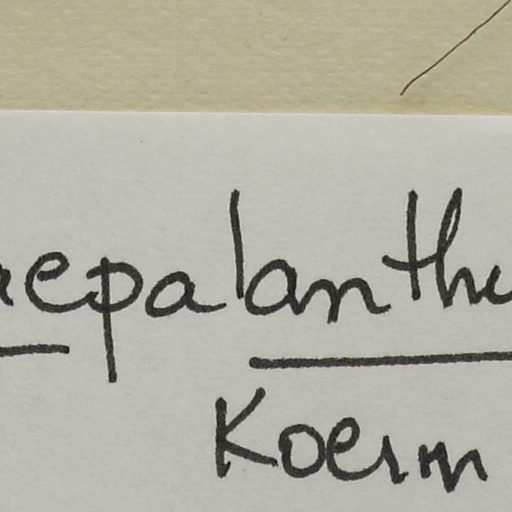 aepalanthu
Koern